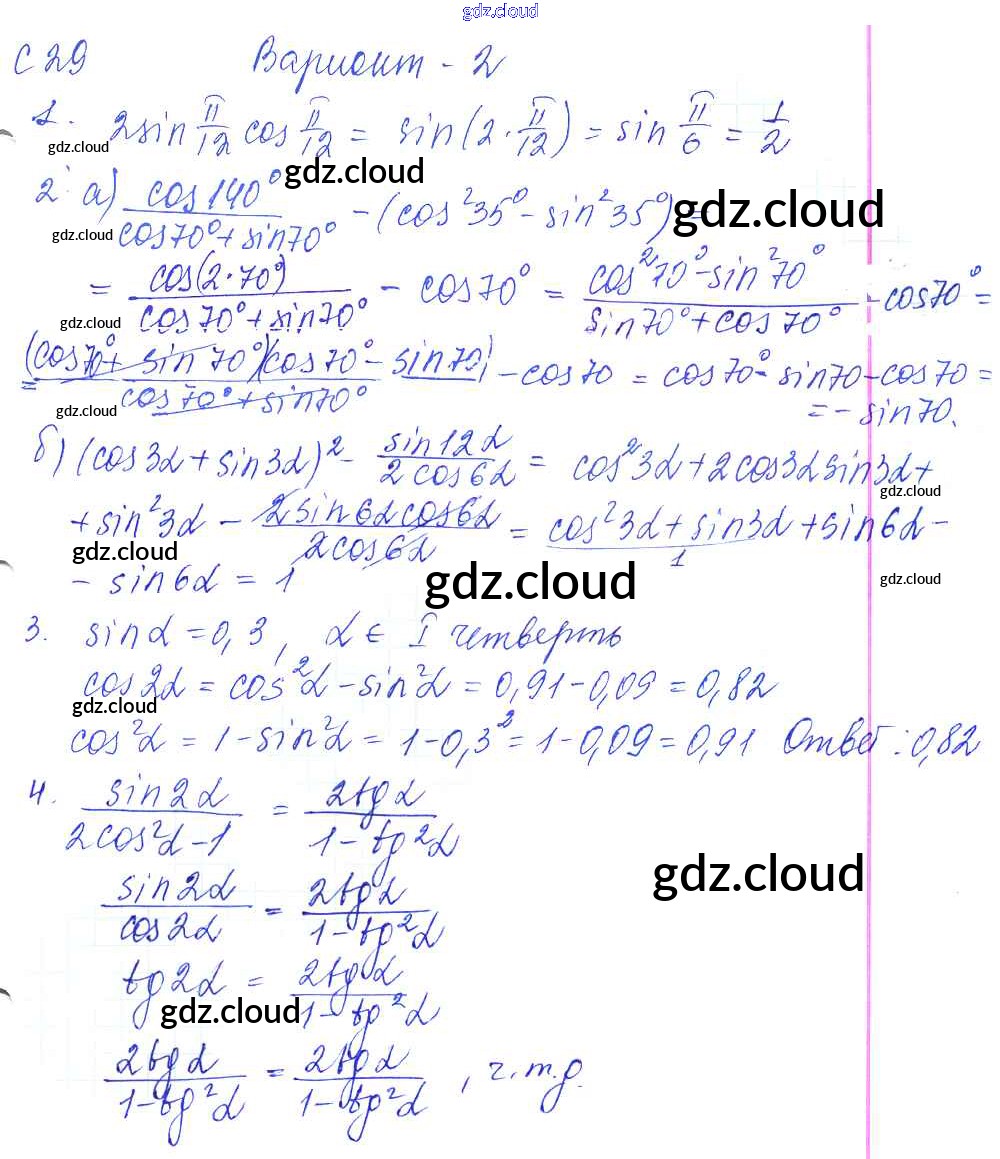 gdz.cloud
С 29 Вариант - 2
1. 2sin π/12 cos π/12 = sin(2·π/12) = sin π/6 = 1/2
gdz.cloud gdz.cloud
2. а) cos140°/(cos70°+sin70°) - (cos²35° - sin²35°) =
gdz.cloud gdz.cloud
= cos(2·70°)/(cos70°+sin70°) - cos70° = (cos²70°-sin²70°)/(sin70°+cos70°) - cos70° =
gdz.cloud
= (cos70°+sin70°)(cos70°-sin70)/(cos70°+sin70°) - cos70 = cos70° - sin70 - cos70 =
gdz.cloud
= - sin70.
б) (cos3α + sin3α)² - sin12α/(2cos6α) = cos²3α + 2cos3αsin3α +
gdz.cloud
+ sin²3α - 2sin6αcos6α/(2cos6α) = cos²3α + sin3α + sin6α -
1
gdz.cloud
- sin6α = 1
gdz.cloud gdz.cloud
3. sinα = 0,3, α ∈ I четверть
cos2α = cos²α - sin²α = 0,91 - 0,09 = 0,82
gdz.cloud
cos²α = 1 - sin²α = 1 - 0,3² = 1 - 0,09 = 0,91 Ответ: 0,82
4. sin2α/(2cos²α - 1) = 2tgα/(1 - tg²α)
gdz.cloud
sin2α/cos2α = 2tgα/(1 - tg²α)
tg2α = 2tgα/(1 - tg²α)
gdz.cloud
2tgα/(1 - tg²α) = 2tgα/(1 - tg²α), ч.т.д.